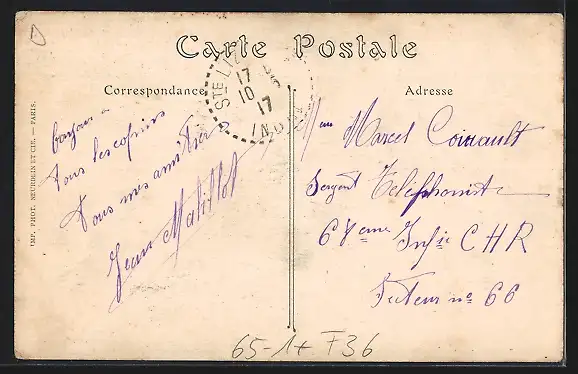 Carte Postale
Correspondance
Adresse
STE LIZ
17
10
17
INDRE
bonjour a
Tous les copains
Tous mes amitiés
Jean
Marcel
Sergent Téléphoniste
68eme Infie C H R
Secteur no 66
IMP. PHOT. NEURDEIN ET CIE. — PARIS.
65-1+ F36